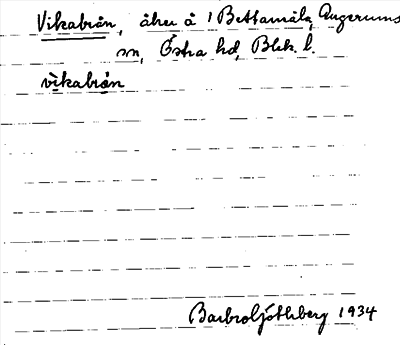 Vikabrån, åker å 1 Bettamåla, Augerums
sn, Östra hd, Blek. l.
vikabrån
Barbro Göthberg 1934